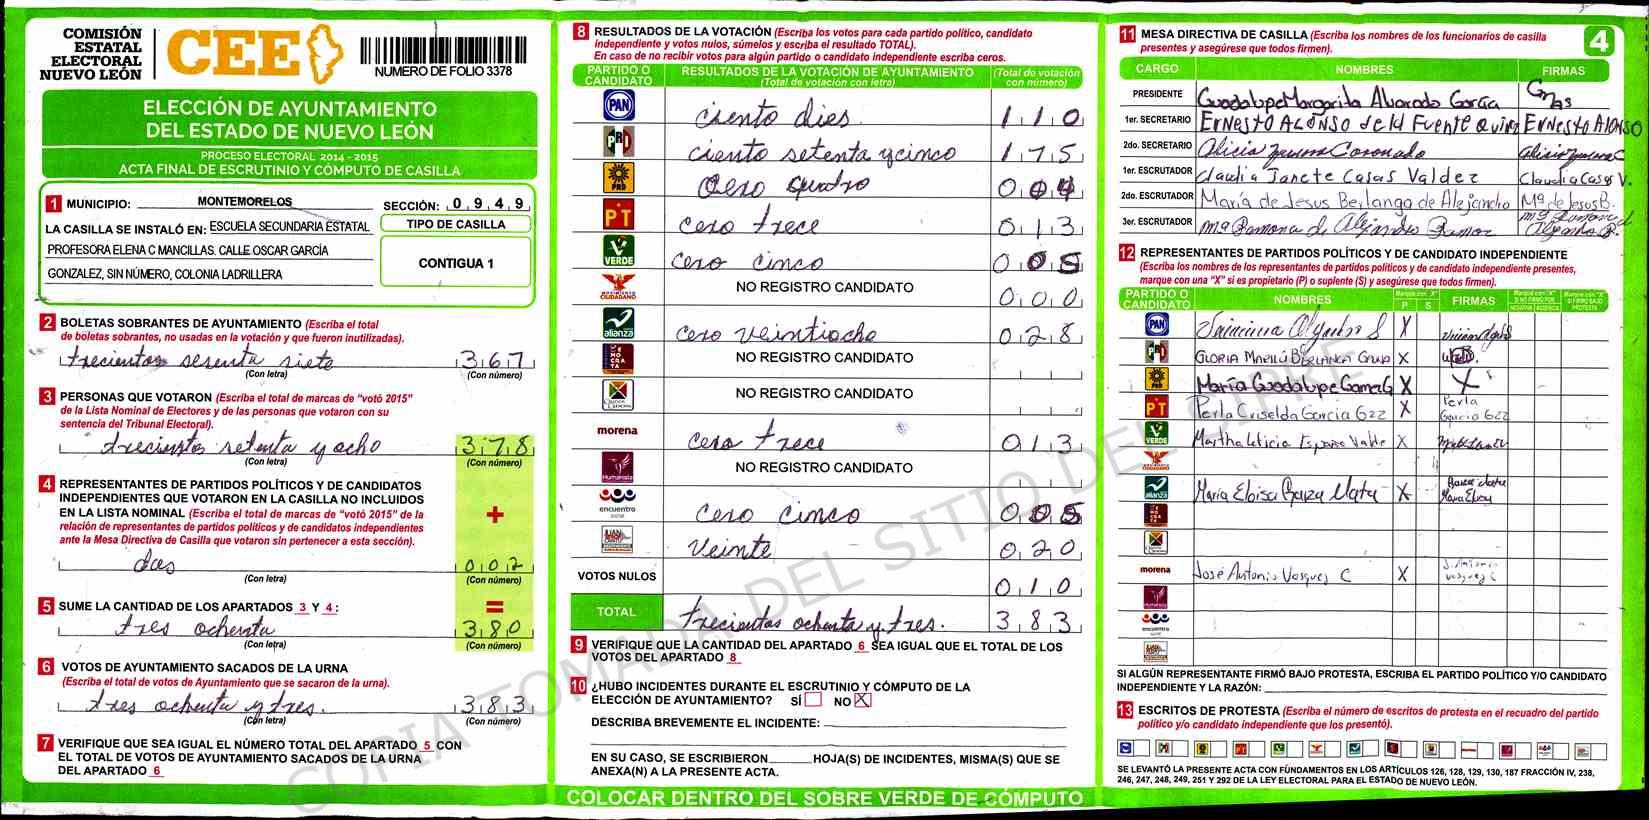 COMISIÓN
ESTATAL
ELECTORAL
NUEVO LEÓN
CEE
NUMERO DE FOLIO 3378
ELECCIÓN DE AYUNTAMIENTO
DEL ESTADO DE NUEVO LEÓN
PROCESO ELECTORAL 2014 - 2015
ACTA FINAL DE ESCRUTINIO Y CÓMPUTO DE CASILLA
1 MUNICIPIO: MONTEMORELOS SECCIÓN: 0 9 4 9
LA CASILLA SE INSTALÓ EN: ESCUELA SECUNDARIA ESTATAL
PROFESORA ELENA C MANCILLAS. CALLE OSCAR GARCÍA
GONZALEZ, SIN NÚMERO, COLONIA LADRILLERA
TIPO DE CASILLA
CONTIGUA 1
2 BOLETAS SOBRANTES DE AYUNTAMIENTO (Escriba el total
de boletas sobrantes, no usadas en la votación y que fueron inutilizadas).
trecientos sesenta siete 3 6 7
(Con letra) (Con número)
3 PERSONAS QUE VOTARON (Escriba el total de marcas de "votó 2015"
de la Lista Nominal de Electores y de las personas que votaron con su
sentencia del Tribunal Electoral).
trecientos setenta y ocho 3 7 8
(Con letra) (Con número)
4 REPRESENTANTES DE PARTIDOS POLÍTICOS Y DE CANDIDATOS
INDEPENDIENTES QUE VOTARON EN LA CASILLA NO INCLUIDOS
EN LA LISTA NOMINAL (Escriba el total de marcas de "votó 2015" de la
relación de representantes de partidos políticos y de candidatos independientes
ante la Mesa Directiva de Casilla que votaron sin pertenecer a esta sección).
+
dos 0 0 2
(Con letra) (Con número)
5 SUME LA CANTIDAD DE LOS APARTADOS 3 Y 4: =
tres ochenta 3 8 0
(Con letra) (Con número)
6 VOTOS DE AYUNTAMIENTO SACADOS DE LA URNA
(Escriba el total de votos de Ayuntamiento que se sacaron de la urna).
tres ochenta y tres. 3 8 3
(Con letra) (Con número)
7 VERIFIQUE QUE SEA IGUAL EL NÚMERO TOTAL DEL APARTADO 5 CON
EL TOTAL DE VOTOS DE AYUNTAMIENTO SACADOS DE LA URNA
DEL APARTADO 6
8 RESULTADOS DE LA VOTACIÓN (Escriba los votos para cada partido político, candidato
independiente y votos nulos, súmelos y escriba el resultado TOTAL).
En caso de no recibir votos para algún partido o candidato independiente escriba ceros.
PARTIDO O CANDIDATO RESULTADOS DE LA VOTACIÓN DE AYUNTAMIENTO (Total de votación con letra) (Total de votación con número)
PAN ciento dies 1 1 0
PRI ciento setenta y cinco 1 7 5
PRD Cero cuatro 0 0 4
PT cero trece 0 1 3
VERDE cero cinco 0 0 5
MOVIMIENTO CIUDADANO NO REGISTRO CANDIDATO 0 0 0
alianza cero veintiocho 0 2 8
NO REGISTRO CANDIDATO
NO REGISTRO CANDIDATO
morena cero trece 0 1 3
Humanista NO REGISTRO CANDIDATO
encuentro social cero cinco 0 0 5
veinte 0 2 0
VOTOS NULOS 0 1 0
TOTAL trecientos ochenta y tres. 3 8 3
9 VERIFIQUE QUE LA CANTIDAD DEL APARTADO 6 SEA IGUAL QUE EL TOTAL DE LOS
VOTOS DEL APARTADO 8
10 ¿HUBO INCIDENTES DURANTE EL ESCRUTINIO Y CÓMPUTO DE LA
ELECCIÓN DE AYUNTAMIENTO? SÍ NO X
DESCRIBA BREVEMENTE EL INCIDENTE:
EN SU CASO, SE ESCRIBIERON HOJA(S) DE INCIDENTES, MISMA(S) QUE SE
ANEXA(N) A LA PRESENTE ACTA.
COLOCAR DENTRO DEL SOBRE VERDE DE CÓMPUTO
11 MESA DIRECTIVA DE CASILLA (Escriba los nombres de los funcionarios de casilla
presentes y asegúrese que todos firmen).
4
CARGO NOMBRES FIRMAS
PRESIDENTE Guadalupe Margarita Alvarado García
1er. SECRETARIO ERNESTO ALONSO de la Fuente ERNESTO ALONSO
2do. SECRETARIO Alicia Coronado
1er. ESCRUTADOR Claudia Janete Casas Valdez Claudia Casas V.
2do. ESCRUTADOR María de Jesus Berlanga de Alejandro Ma de Jesus B.
3er. ESCRUTADOR Ma Ramona de Alejandro Ramos
12 REPRESENTANTES DE PARTIDOS POLÍTICOS Y DE CANDIDATO INDEPENDIENTE
(Escriba los nombres de los representantes de partidos políticos y de candidato independiente presentes,
marque con una "X" si es propietario (P) o suplente (S) y asegúrese que todos firmen).
PARTIDO O CANDIDATO NOMBRES Marque con "X" P S FIRMAS
PAN X
PRI GLORIA MARILÚ BERLANGA X
PRD María Guadalupe Gamez G X X
PT Perla Griselda Garcia Gzz X Perla Garcia Gzz
VERDE Martha Leticia Esparza Valde X
CIUDADANO
alianza Maria Eloisa Garza Mata X
morena José Antonio Vasques C X J. Antonio Vasques C
Humanista
encuentro social
SI ALGÚN REPRESENTANTE FIRMÓ BAJO PROTESTA, ESCRIBA EL PARTIDO POLÍTICO Y/O CANDIDATO
INDEPENDIENTE Y LA RAZÓN:
13 ESCRITOS DE PROTESTA (Escriba el número de escritos de protesta en el recuadro del partido
político y/o candidato independiente que los presentó).
SE LEVANTÓ LA PRESENTE ACTA CON FÚNDAMENTOS EN LOS ARTÍCULOS 126, 128, 129, 130, 187 FRACCIÓN IV, 238,
246, 247, 248, 249, 251 Y 292 DE LA LEY ELECTORAL PARA EL ESTADO DE NUEVO LEÓN.
COPIA TOMADA DEL SITIO DEL SIPRE